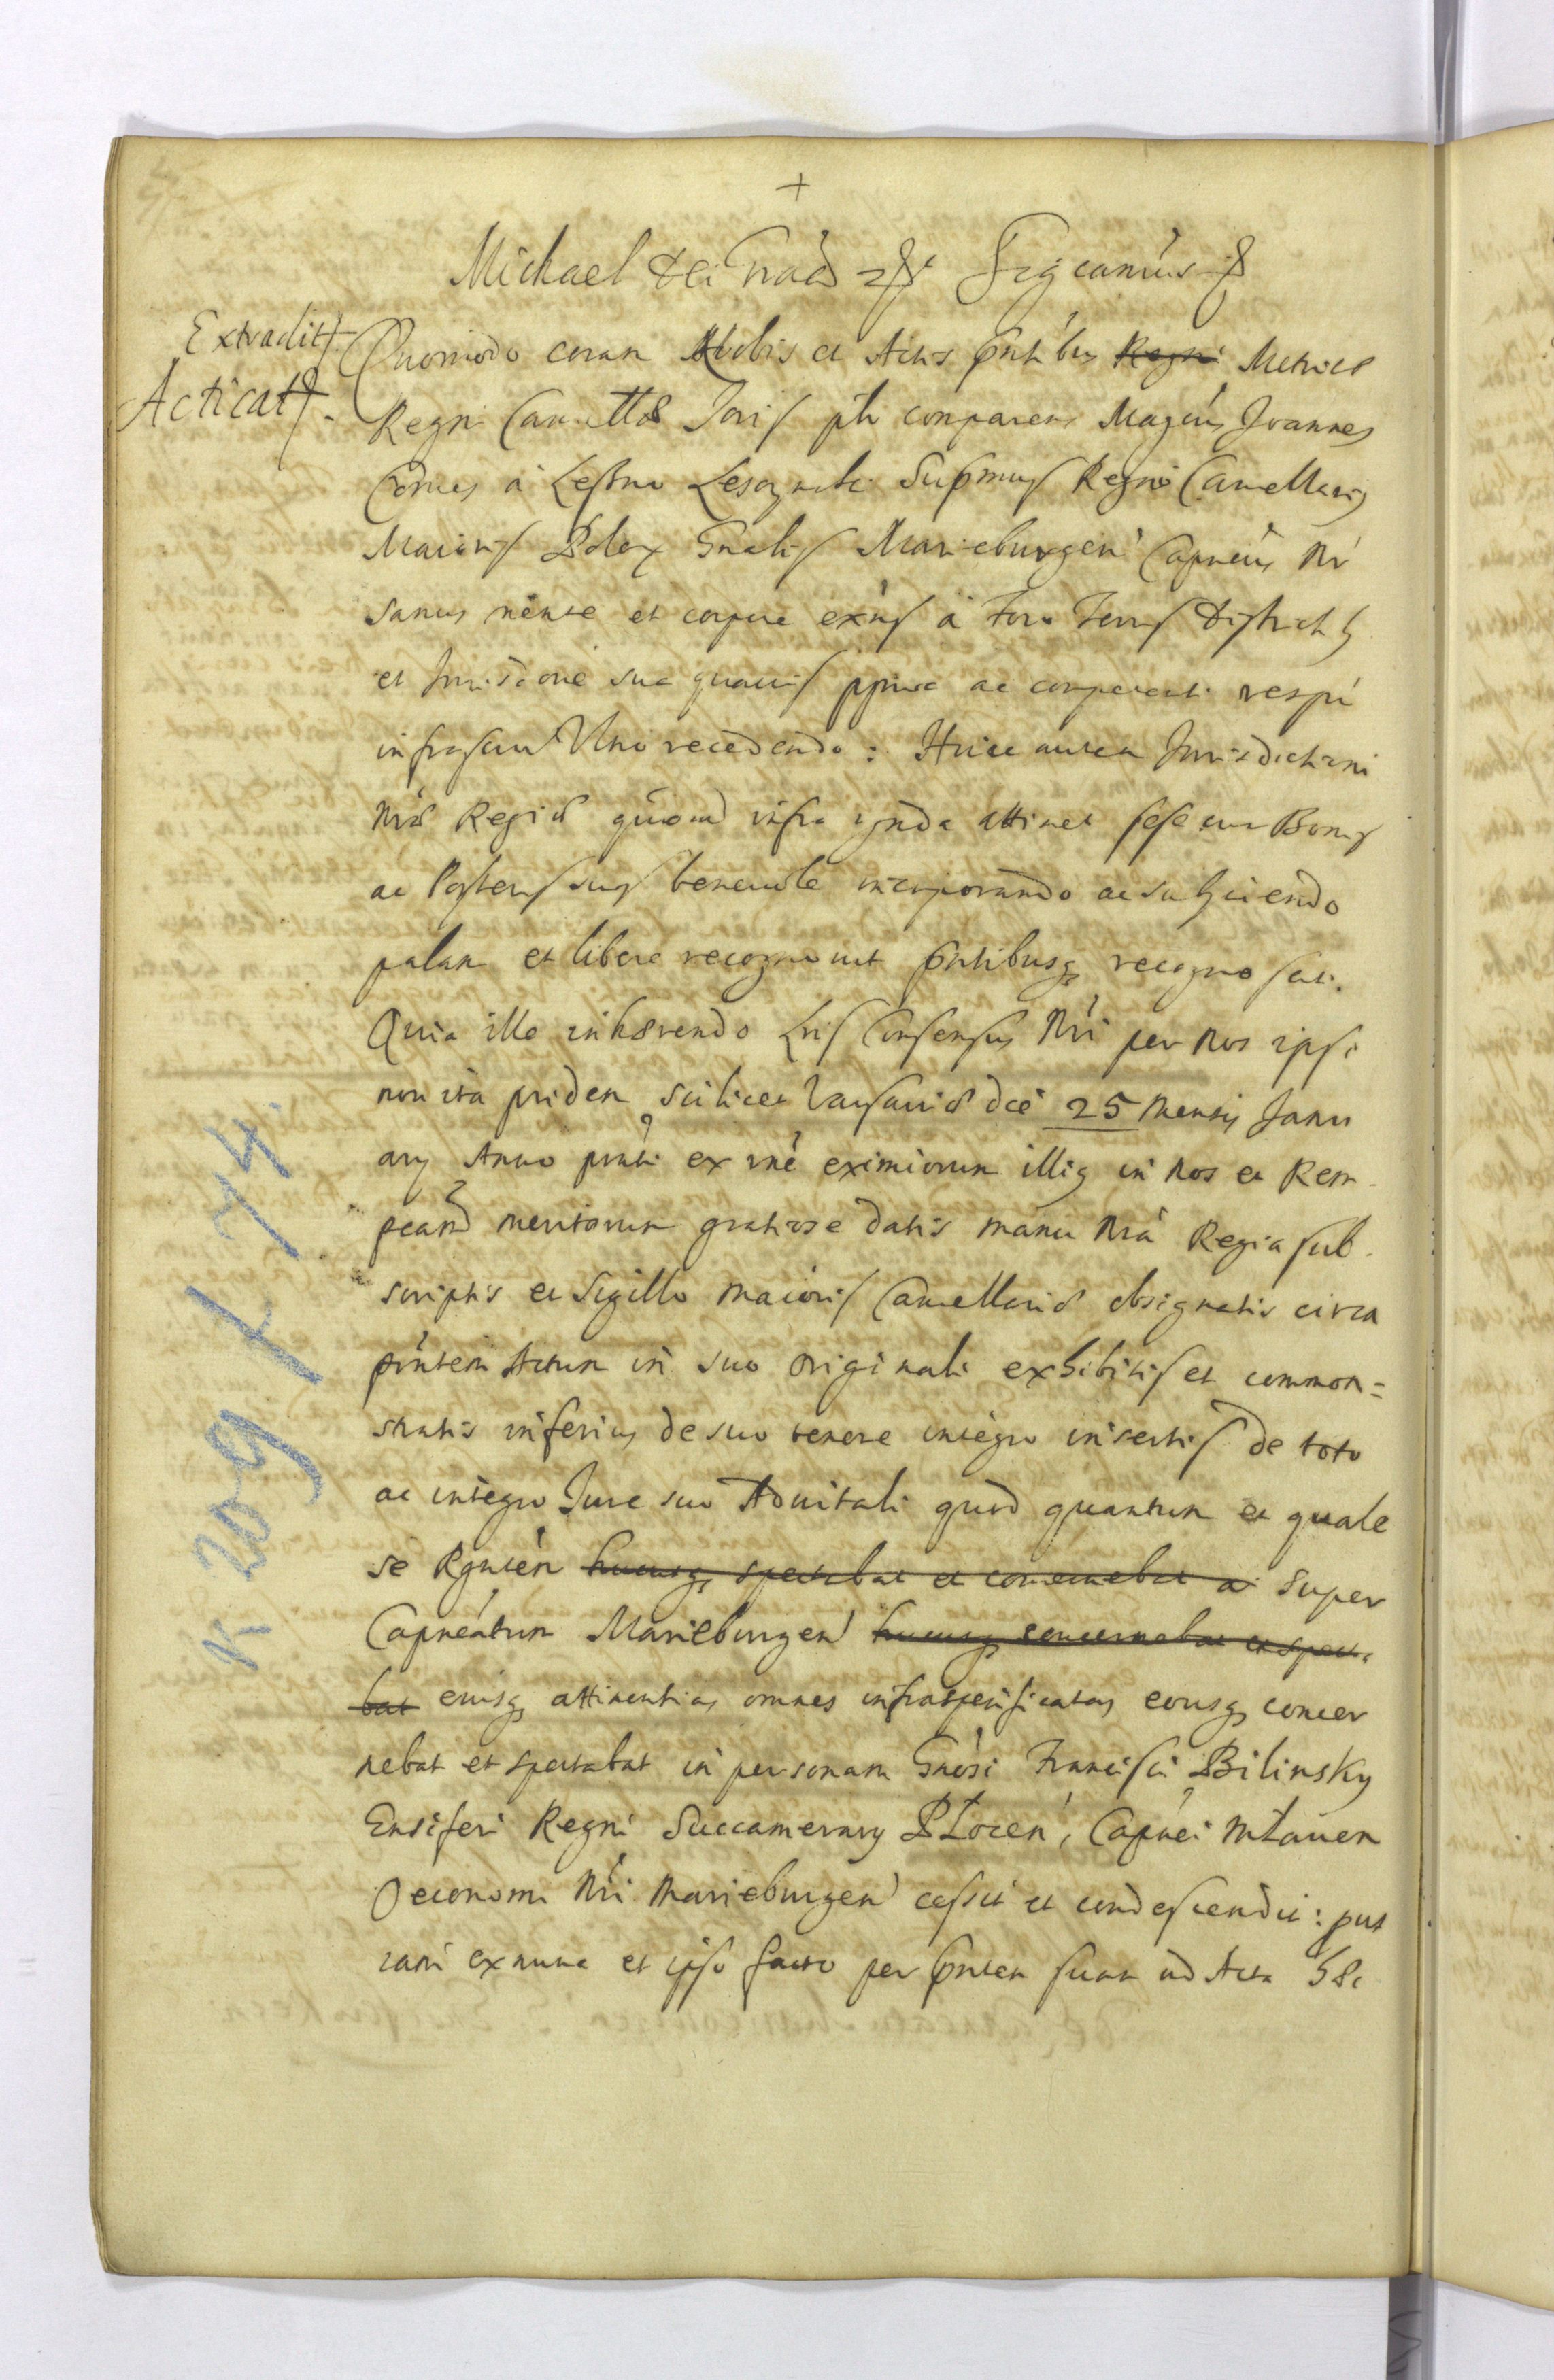 +
Michael Dei Grãa Significamus
Extradit.
Acticat.
Quomodo coram Nobis et Actis pñtibus Regni Metrices
Regni Cancellariæ Maioris plr comparens Magcus Joannes
Comes à Leszno Leszczynski Supmus Regni Cancellarius
Maioris Poloæ Gnalis Marieburgen Capneus Nr
sanus mente et corpore exñs à Foro Terris Districtus
et Jurisdõne sua quavis ppria ac competenti respũ
infrascrip Vni recedendo: Huic autem Jurisdictioni
Nræ Regiæ quoad infra ynda attinet sese cum Bonis
ac Posteris suis benevole incorporando ac subiiciendo
palam et libere recognovit pñtibusq recognoscit.
Quia ille inhærendo Lris Consensus Nri per Nos ipsi
non ita pridem scilicet Varsaviæ die 25 Mensis Janu
ary Anno pñti ex rne eximiorum illig in Nos et Rem
pcam meritorum gratiose datis manu Nra Regia sub
scriptis et Sigillo maioris Cancellariæ obsignatis circa
pñtem Actum in suo originali exhibitis et common=
stratis inferius de suo tenore integro insertis de toto
ac integro Jure suo Advitali quod quantum et quale
se Rgntem hucusq spectabat et concernebat a super
Capneatum Marieburgen hucusq concernebat et specta
bat eiusq attinentias omnes infraspecificatas eousq concer
nebat et spectabat in personam Gnosi Francisci Bilinsky
Ensiferi Regni Succamerary Płocen, Capnei Mławen
Oeconomi Nri Marieburgen cessit et condescendit: put
iam ex nunc et ipso facto per pñtem suam ad Acta hæc
K 209 / 74.